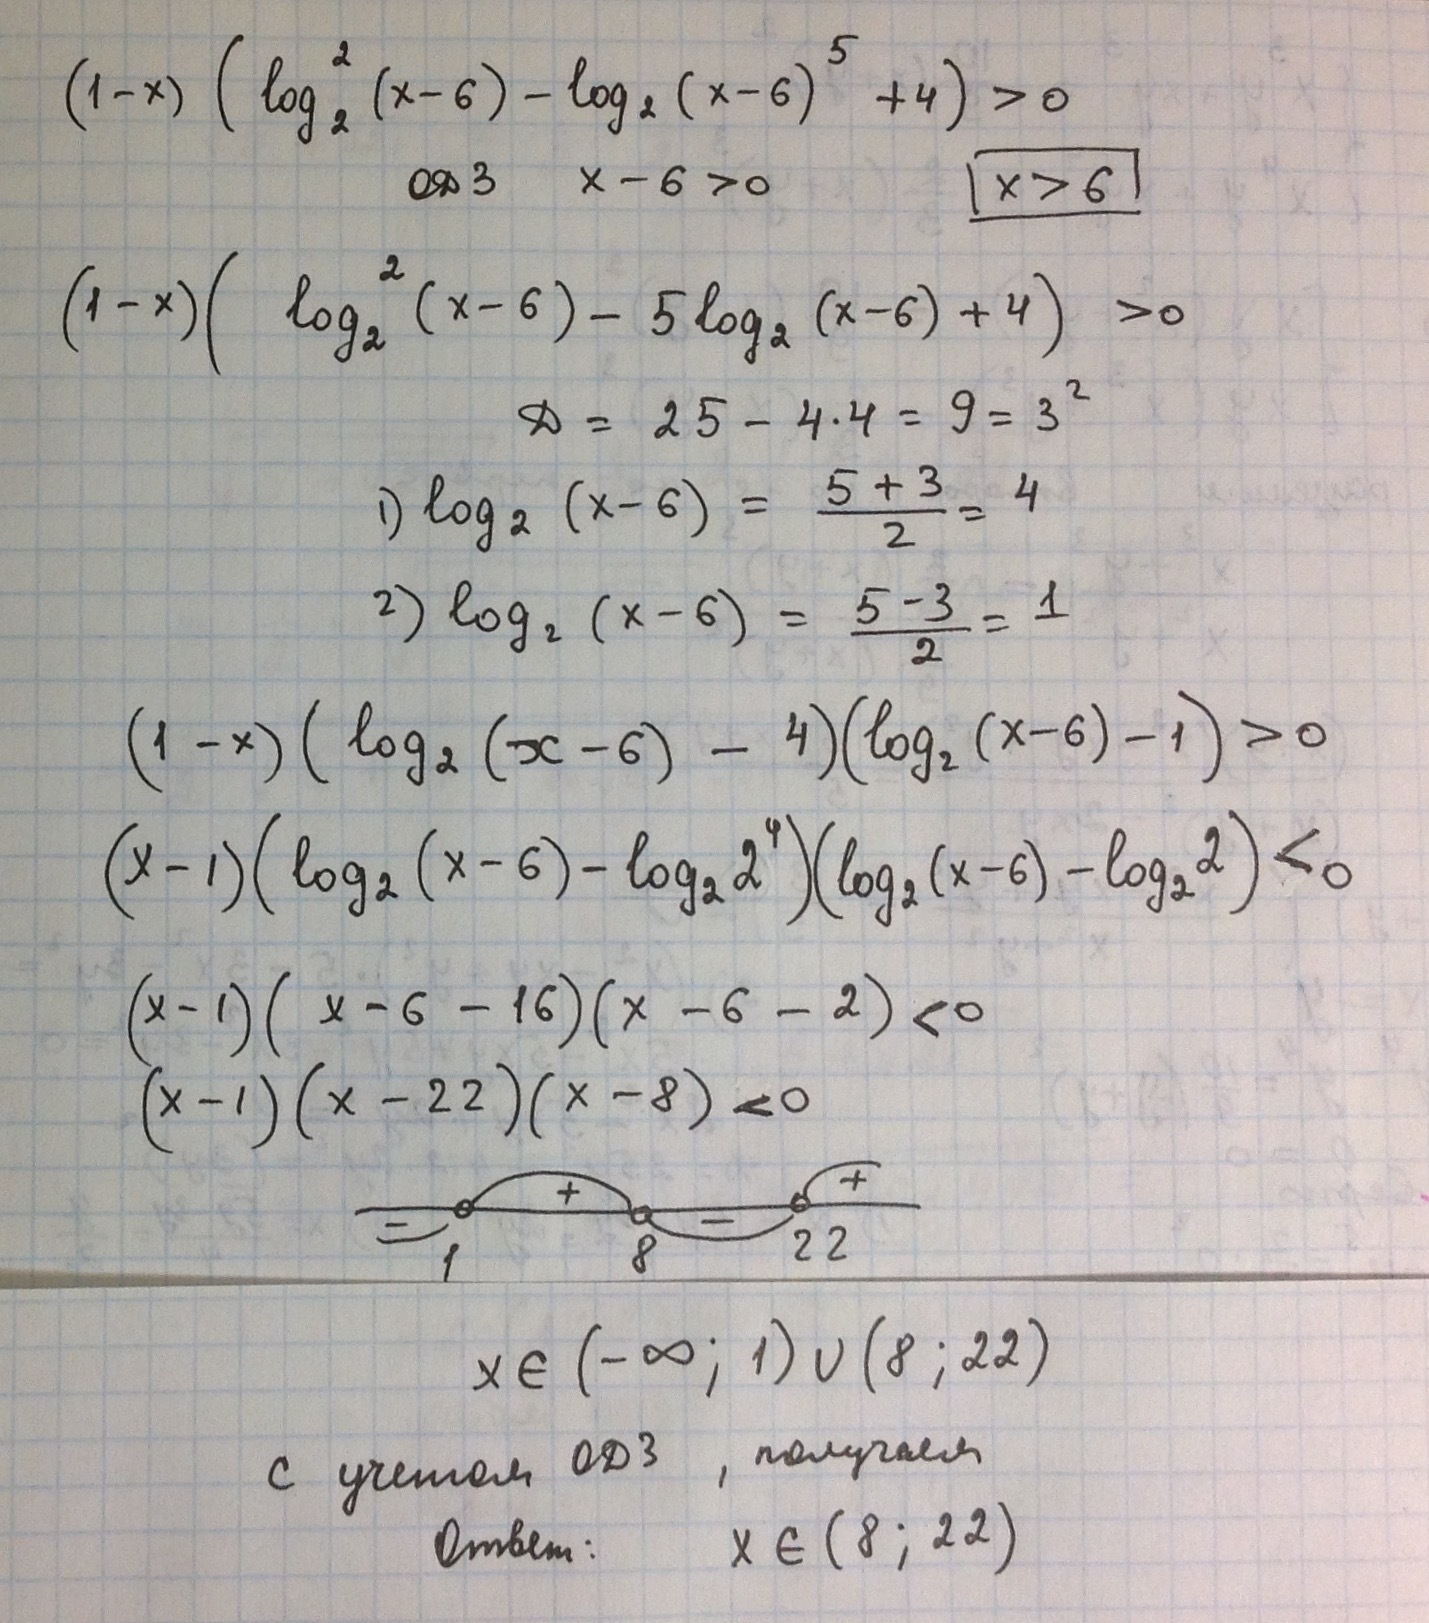 (1-x) (log₂² (x-6) - log₂ (x-6)⁵ +4) > 0
ОДЗ x-6>0 x>6
(1-x)( log₂² (x-6) - 5 log₂ (x-6) +4) >0
Д = 25 - 4·4 = 9 = 3²
1) log₂ (x-6) = (5+3)/2 = 4
2) log₂ (x-6) = (5-3)/2 = 1
(1-x)( log₂ (x-6) - 4)(log₂ (x-6) -1) > 0
(x-1)(log₂ (x-6) - log₂ 2⁴)(log₂ (x-6) - log₂ 2) < 0
(x-1)( x-6-16)(x-6-2) < 0
(x-1)(x-22)(x-8) < 0
- + - +
1 8 22
x ∈ (-∞; 1) ∪ (8; 22)
с учетом ОДЗ, получаем
Ответ: x ∈ (8; 22)